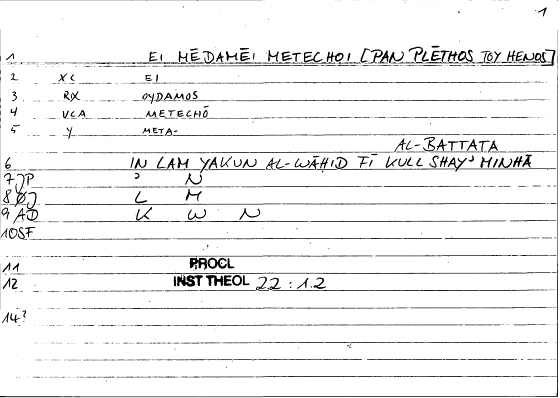 1
1 EI MĒDAMĒI METECHOI [PAN PLĒTHOS TOY HENOS]
2 XC EI
3 RX OYDAMOS
4 VCA METECHŌ
5 Y META-
AL-BATTATA
6 IN LAM YAKUN AL-WĀḤID FĪ KULL SHAYʾ MINHĀ
7 JP ʾ N
8 ØJ L M
9 AD K W N
10 SF
11 PROCL
12 INST THEOL 22:1.2
14?